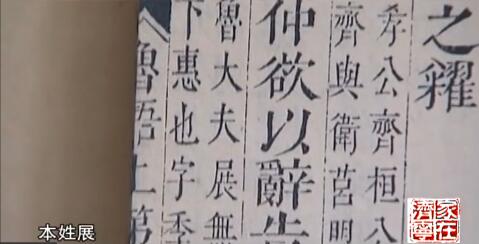 之糴
孝公齊桓公
齊與衛莒明
仲欲以辭告
魯大夫展無
下惠也字季
魯語上第
本姓展
家在
濟寧